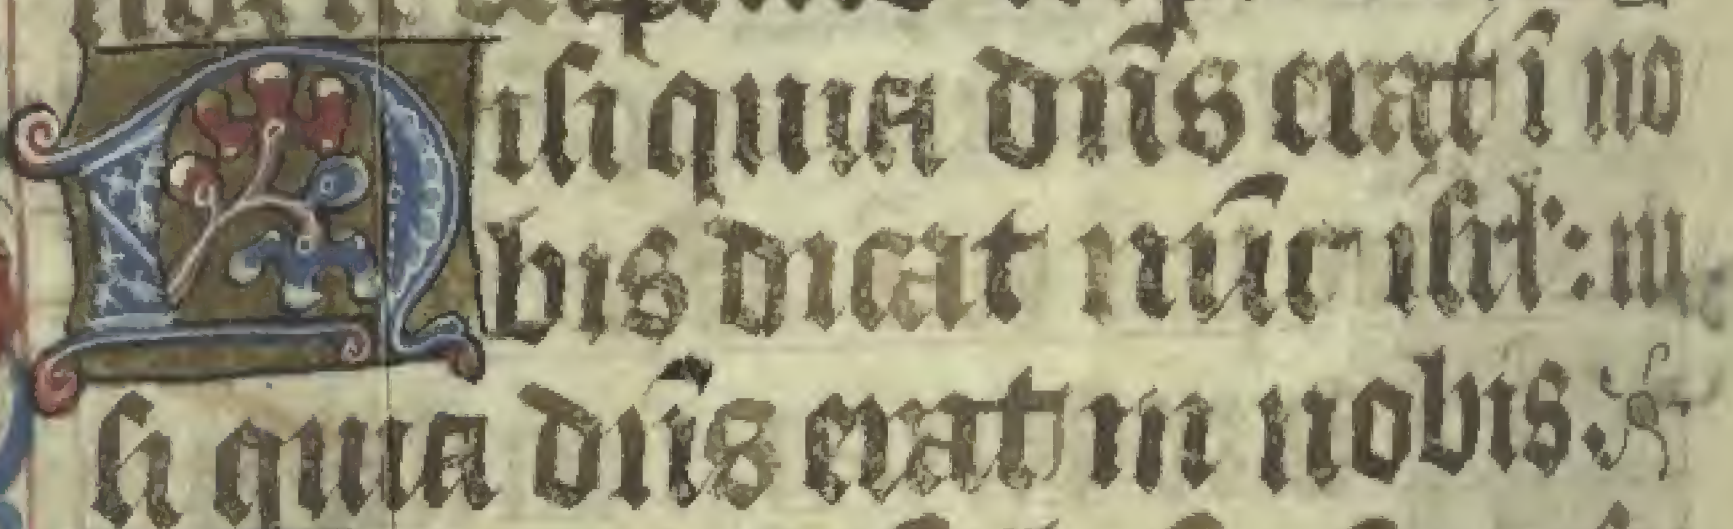 Nisi quia dñs erat ī no
bis dicat nūc isrl': ni
si quia dñs erat in nobis.